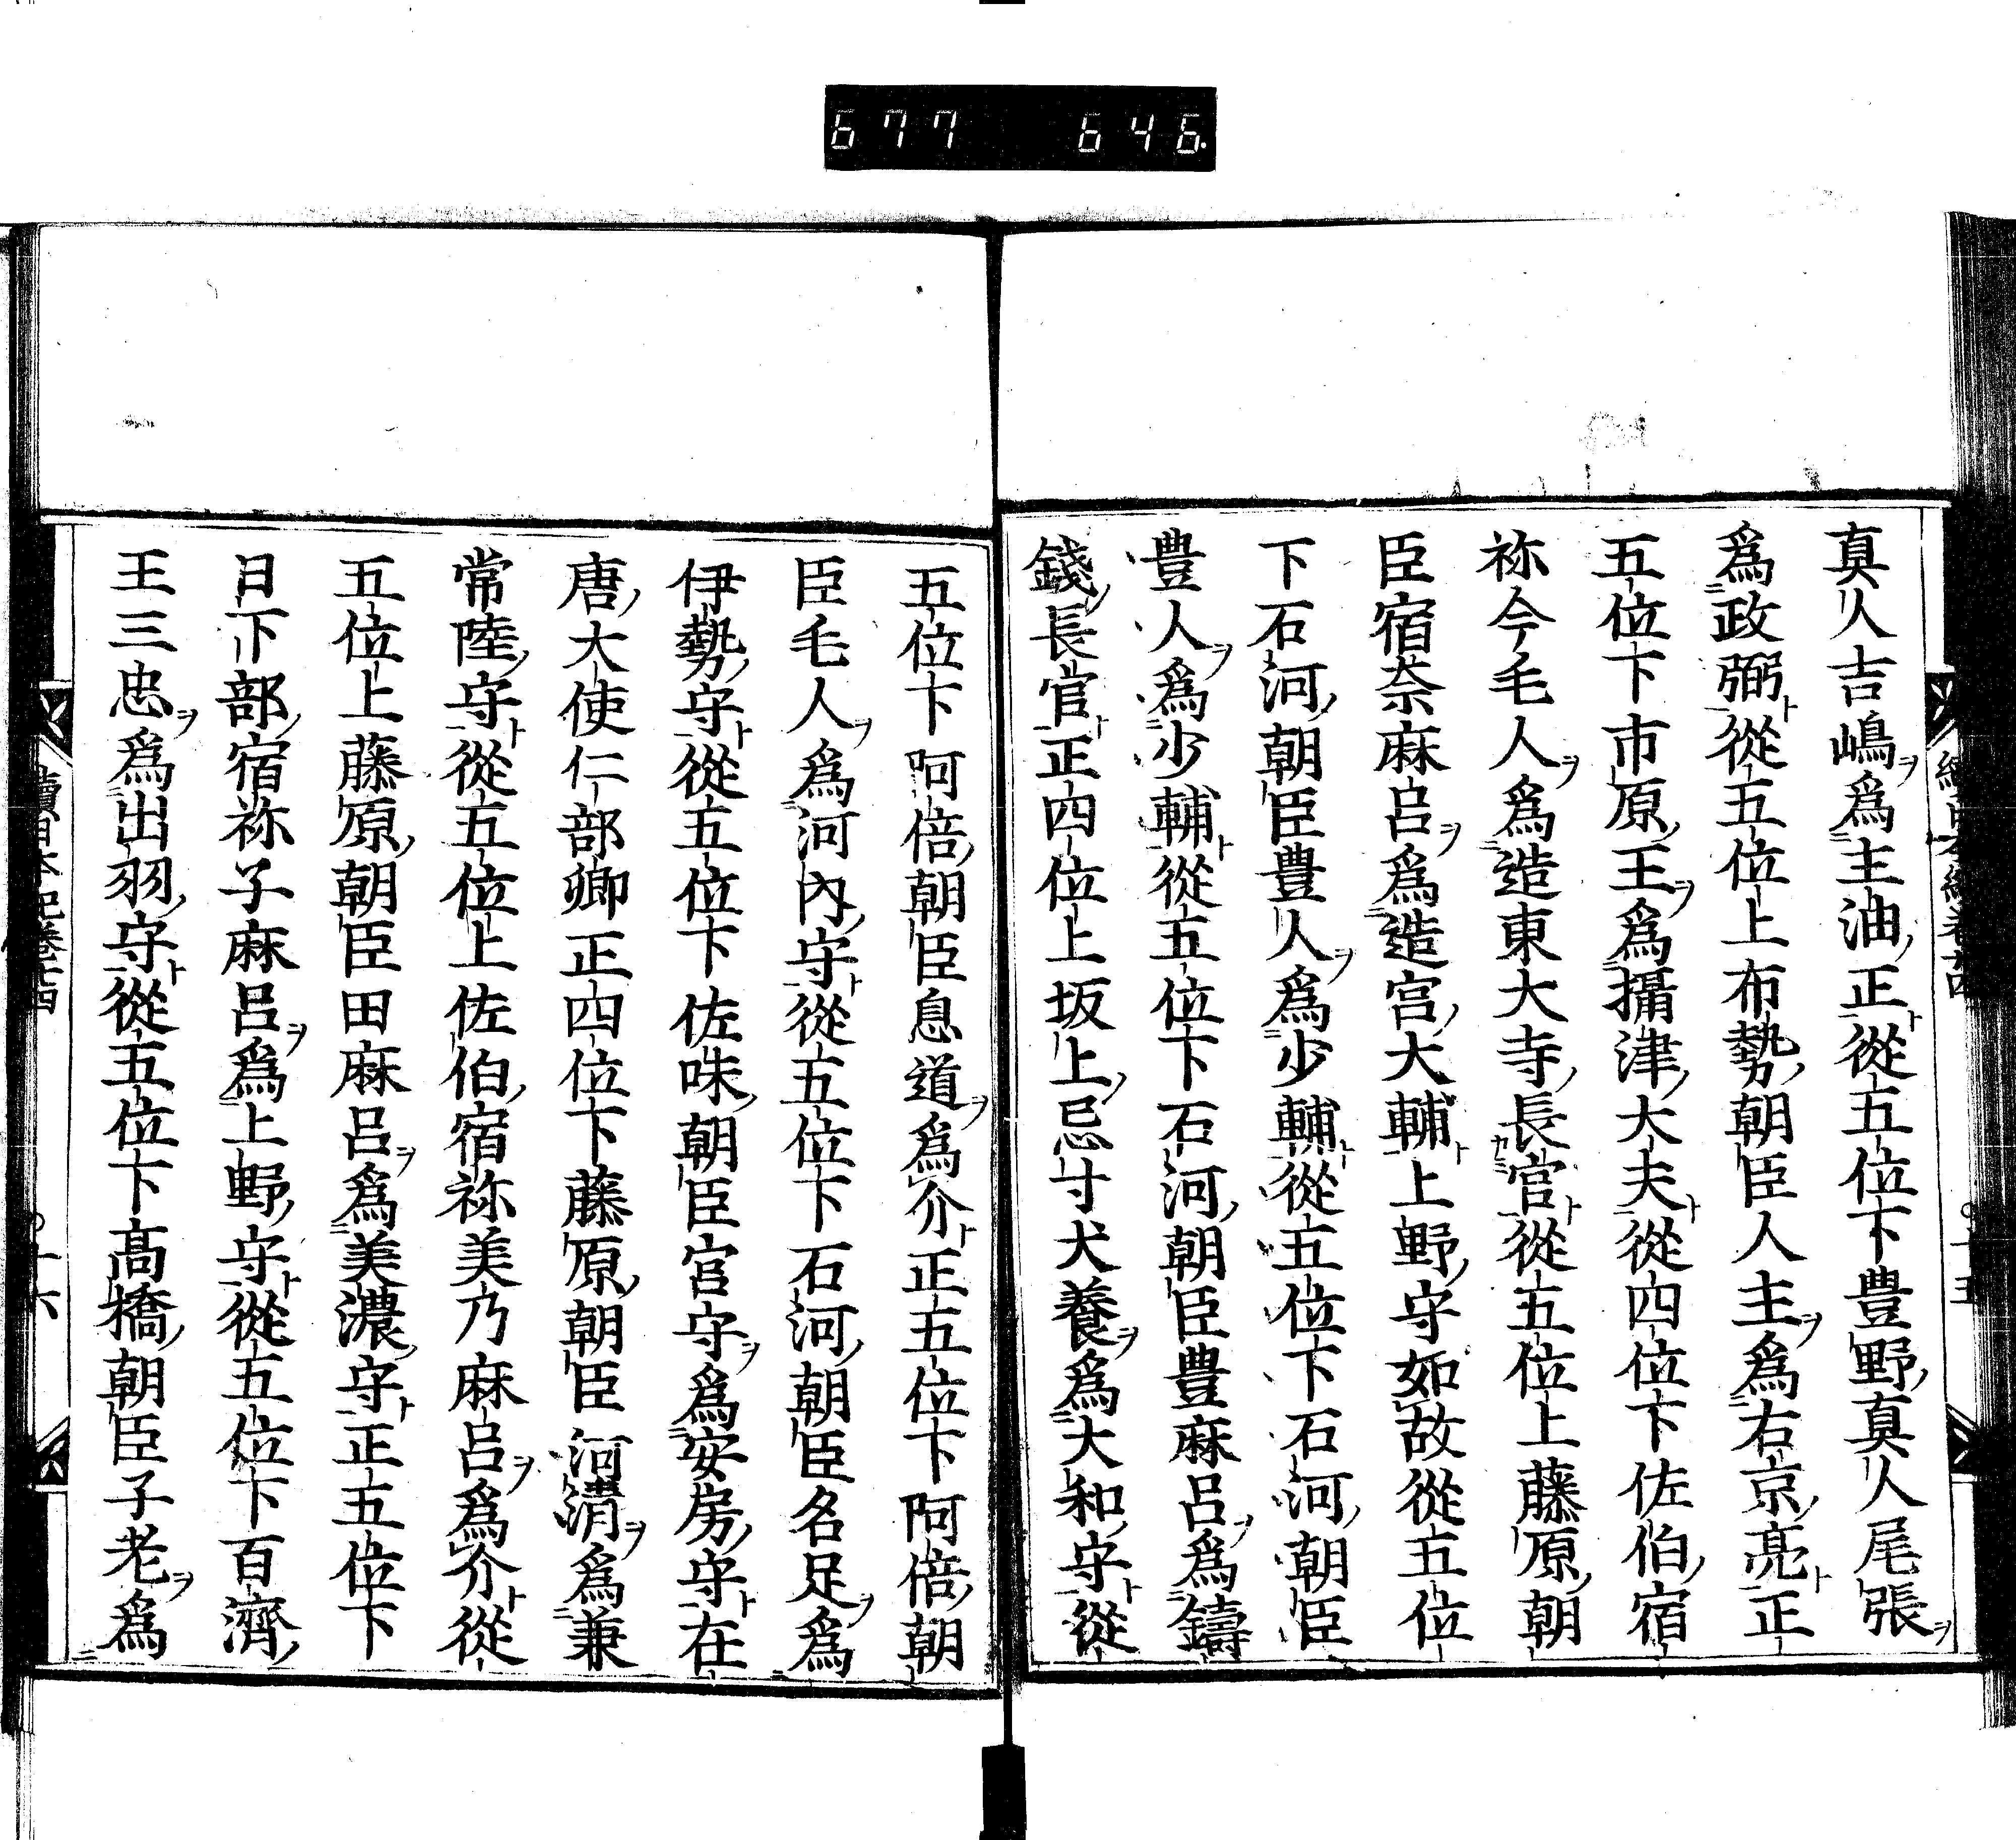 677 646.
真人吉嶋ヲ爲主油正從五位下豊野真人尾張ヲ
爲政弼從五位上布勢朝臣人主ヲ爲右京亮正
五位下市原王ヲ爲攝津大夫從四位下佐伯宿
祢今毛人ヲ爲造東大寺長官從五位上藤原朝
臣宿奈麻呂ヲ爲造宮大輔上野守如故從五位
下石河朝臣豊人ヲ爲少輔從五位下石河朝臣
豊人ヲ爲少輔從五位下石河朝臣豊麻呂ヲ爲鑄
錢長官正四位上坂上忌寸犬養ヲ爲大和守從
五位下阿倍朝臣息道ヲ爲介正五位下阿倍朝
臣毛人ヲ爲河內守從五位下石河朝臣名足ヲ爲
伊勢守從五位下佐味朝臣宮守ヲ爲安房守在
唐大使仁部卿正四位下藤原朝臣河清ヲ爲兼
常陸守從五位上佐伯宿祢美乃麻呂ヲ爲介從
五位上藤原朝臣田麻呂ヲ爲美濃守正五位下
日下部宿祢子麻呂ヲ爲上野守從五位下百濟
王三忠ヲ爲出羽守從五位下高橋朝臣子老ヲ爲
續日本紀卷廿四
十六